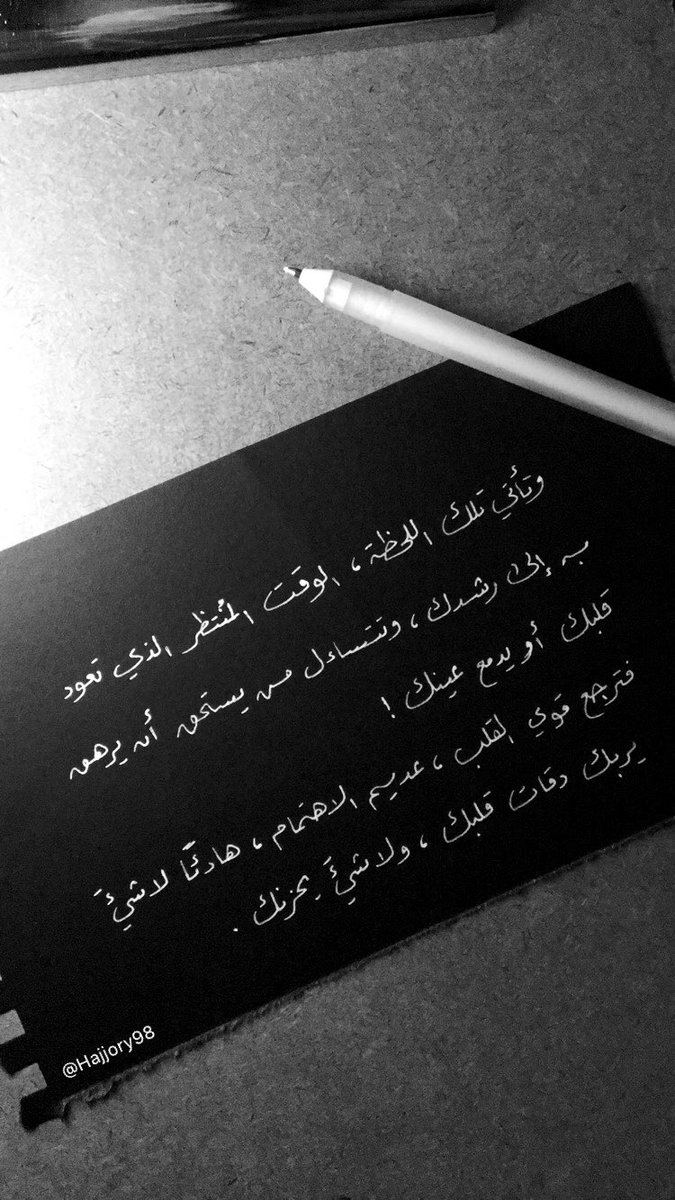 وتأتي تلك اللحظة ، الوقت المُنتظر الذي تعود
به إلى رشدك ، وتتساءل من يستحق أن يرهق
قلبك أو يدمع عينك !
فترجع قوي القلب ، عديم الاهتمام ، هادئًا لاشيءَ
يربك دقات قلبك ، ولاشيءَ يحزنك .
@Hajjory98